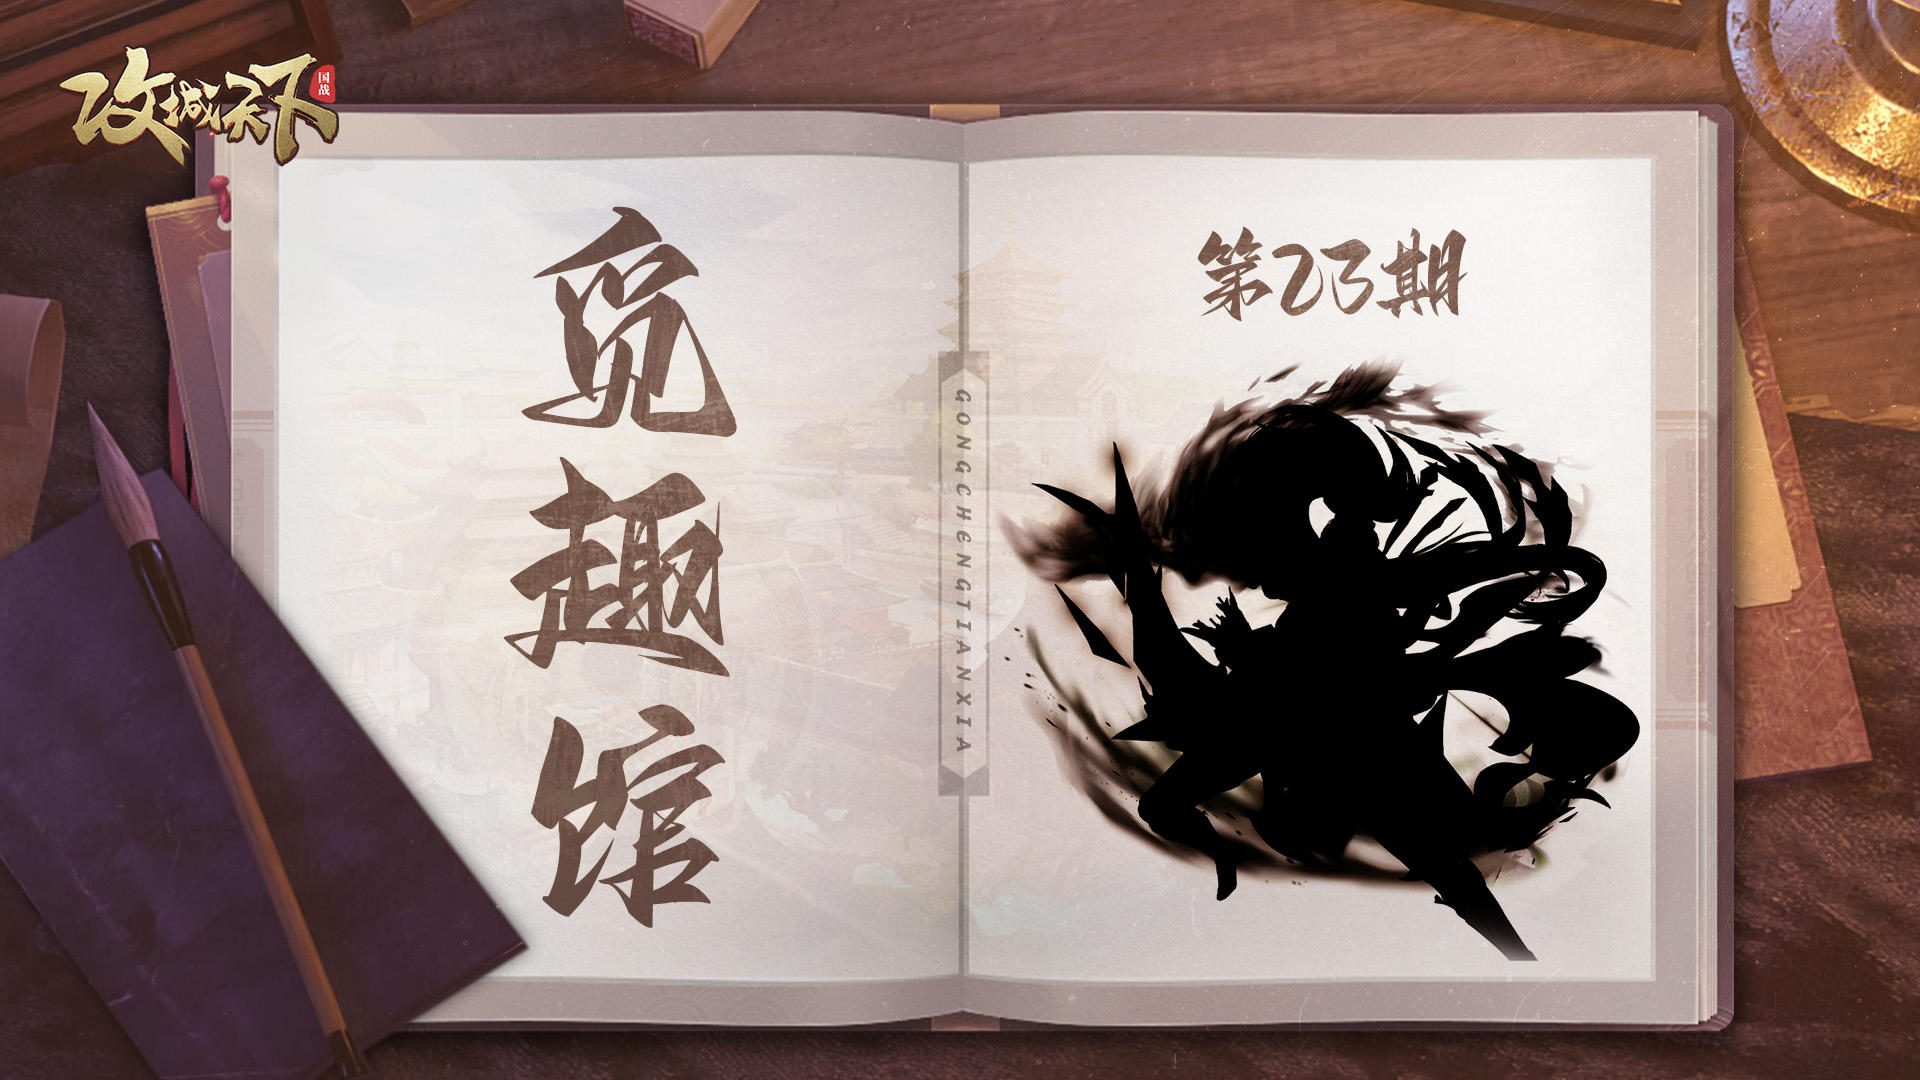 攻城天下
国战
觅趣馆
GONGCHENGTIANXIA
第23期